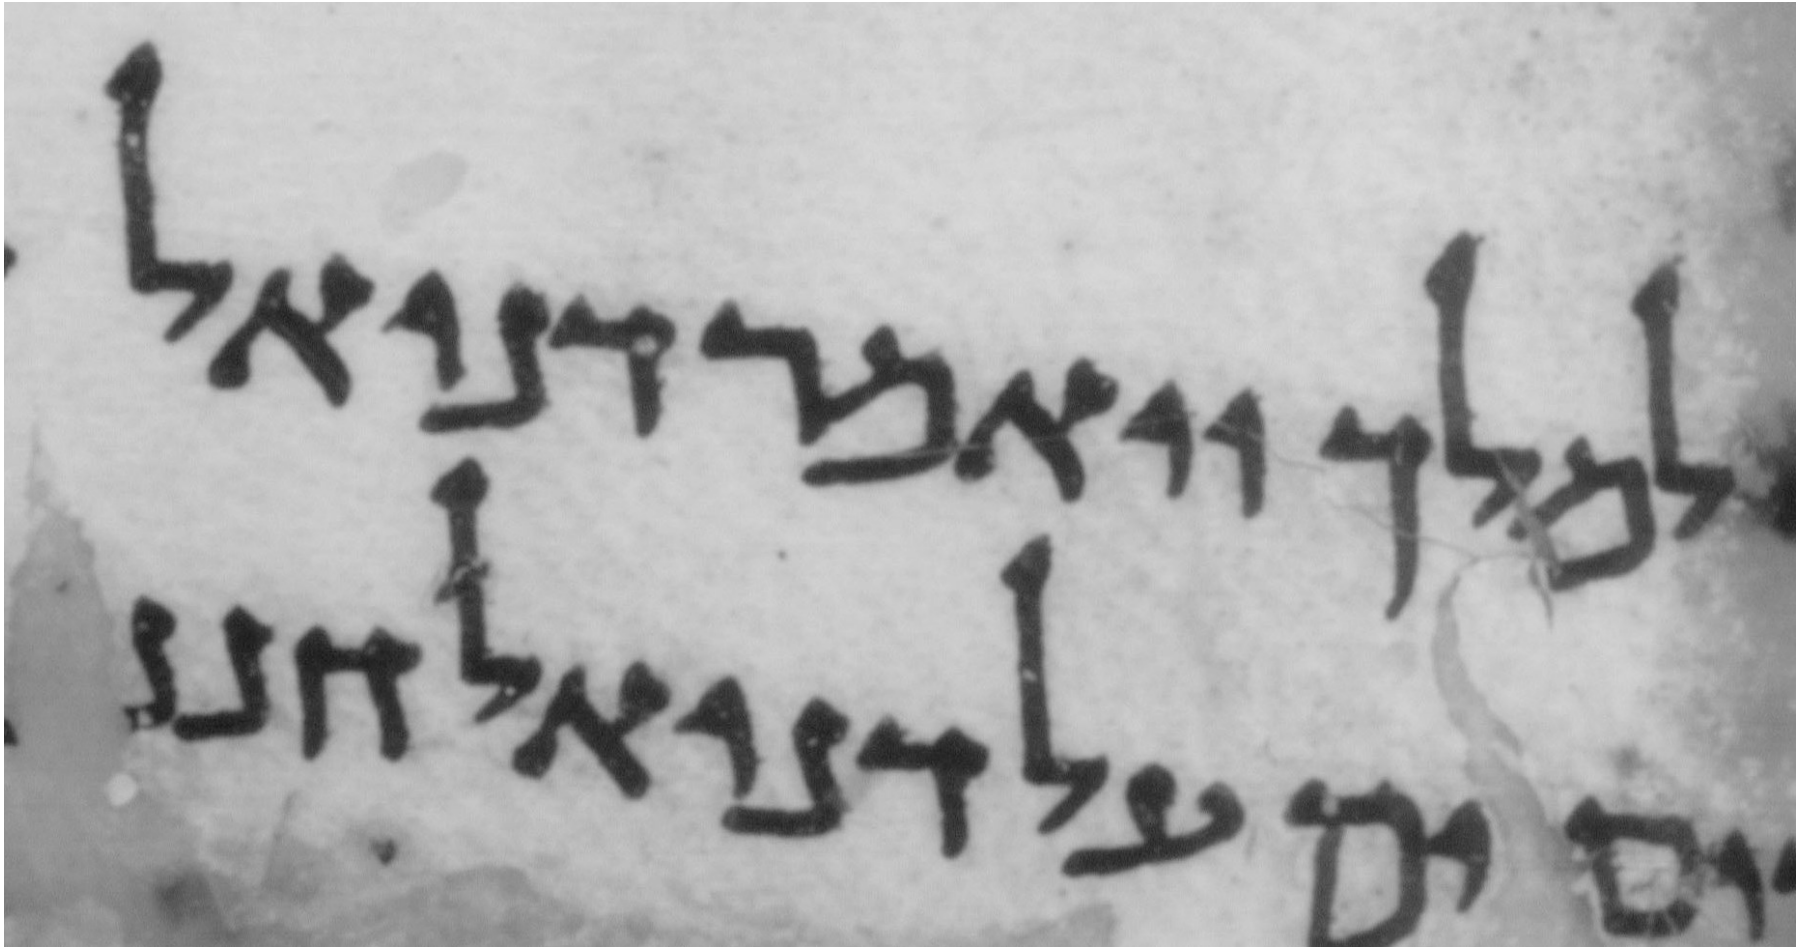 למלך ויאמר דניאל
יסים על דניאל חננ